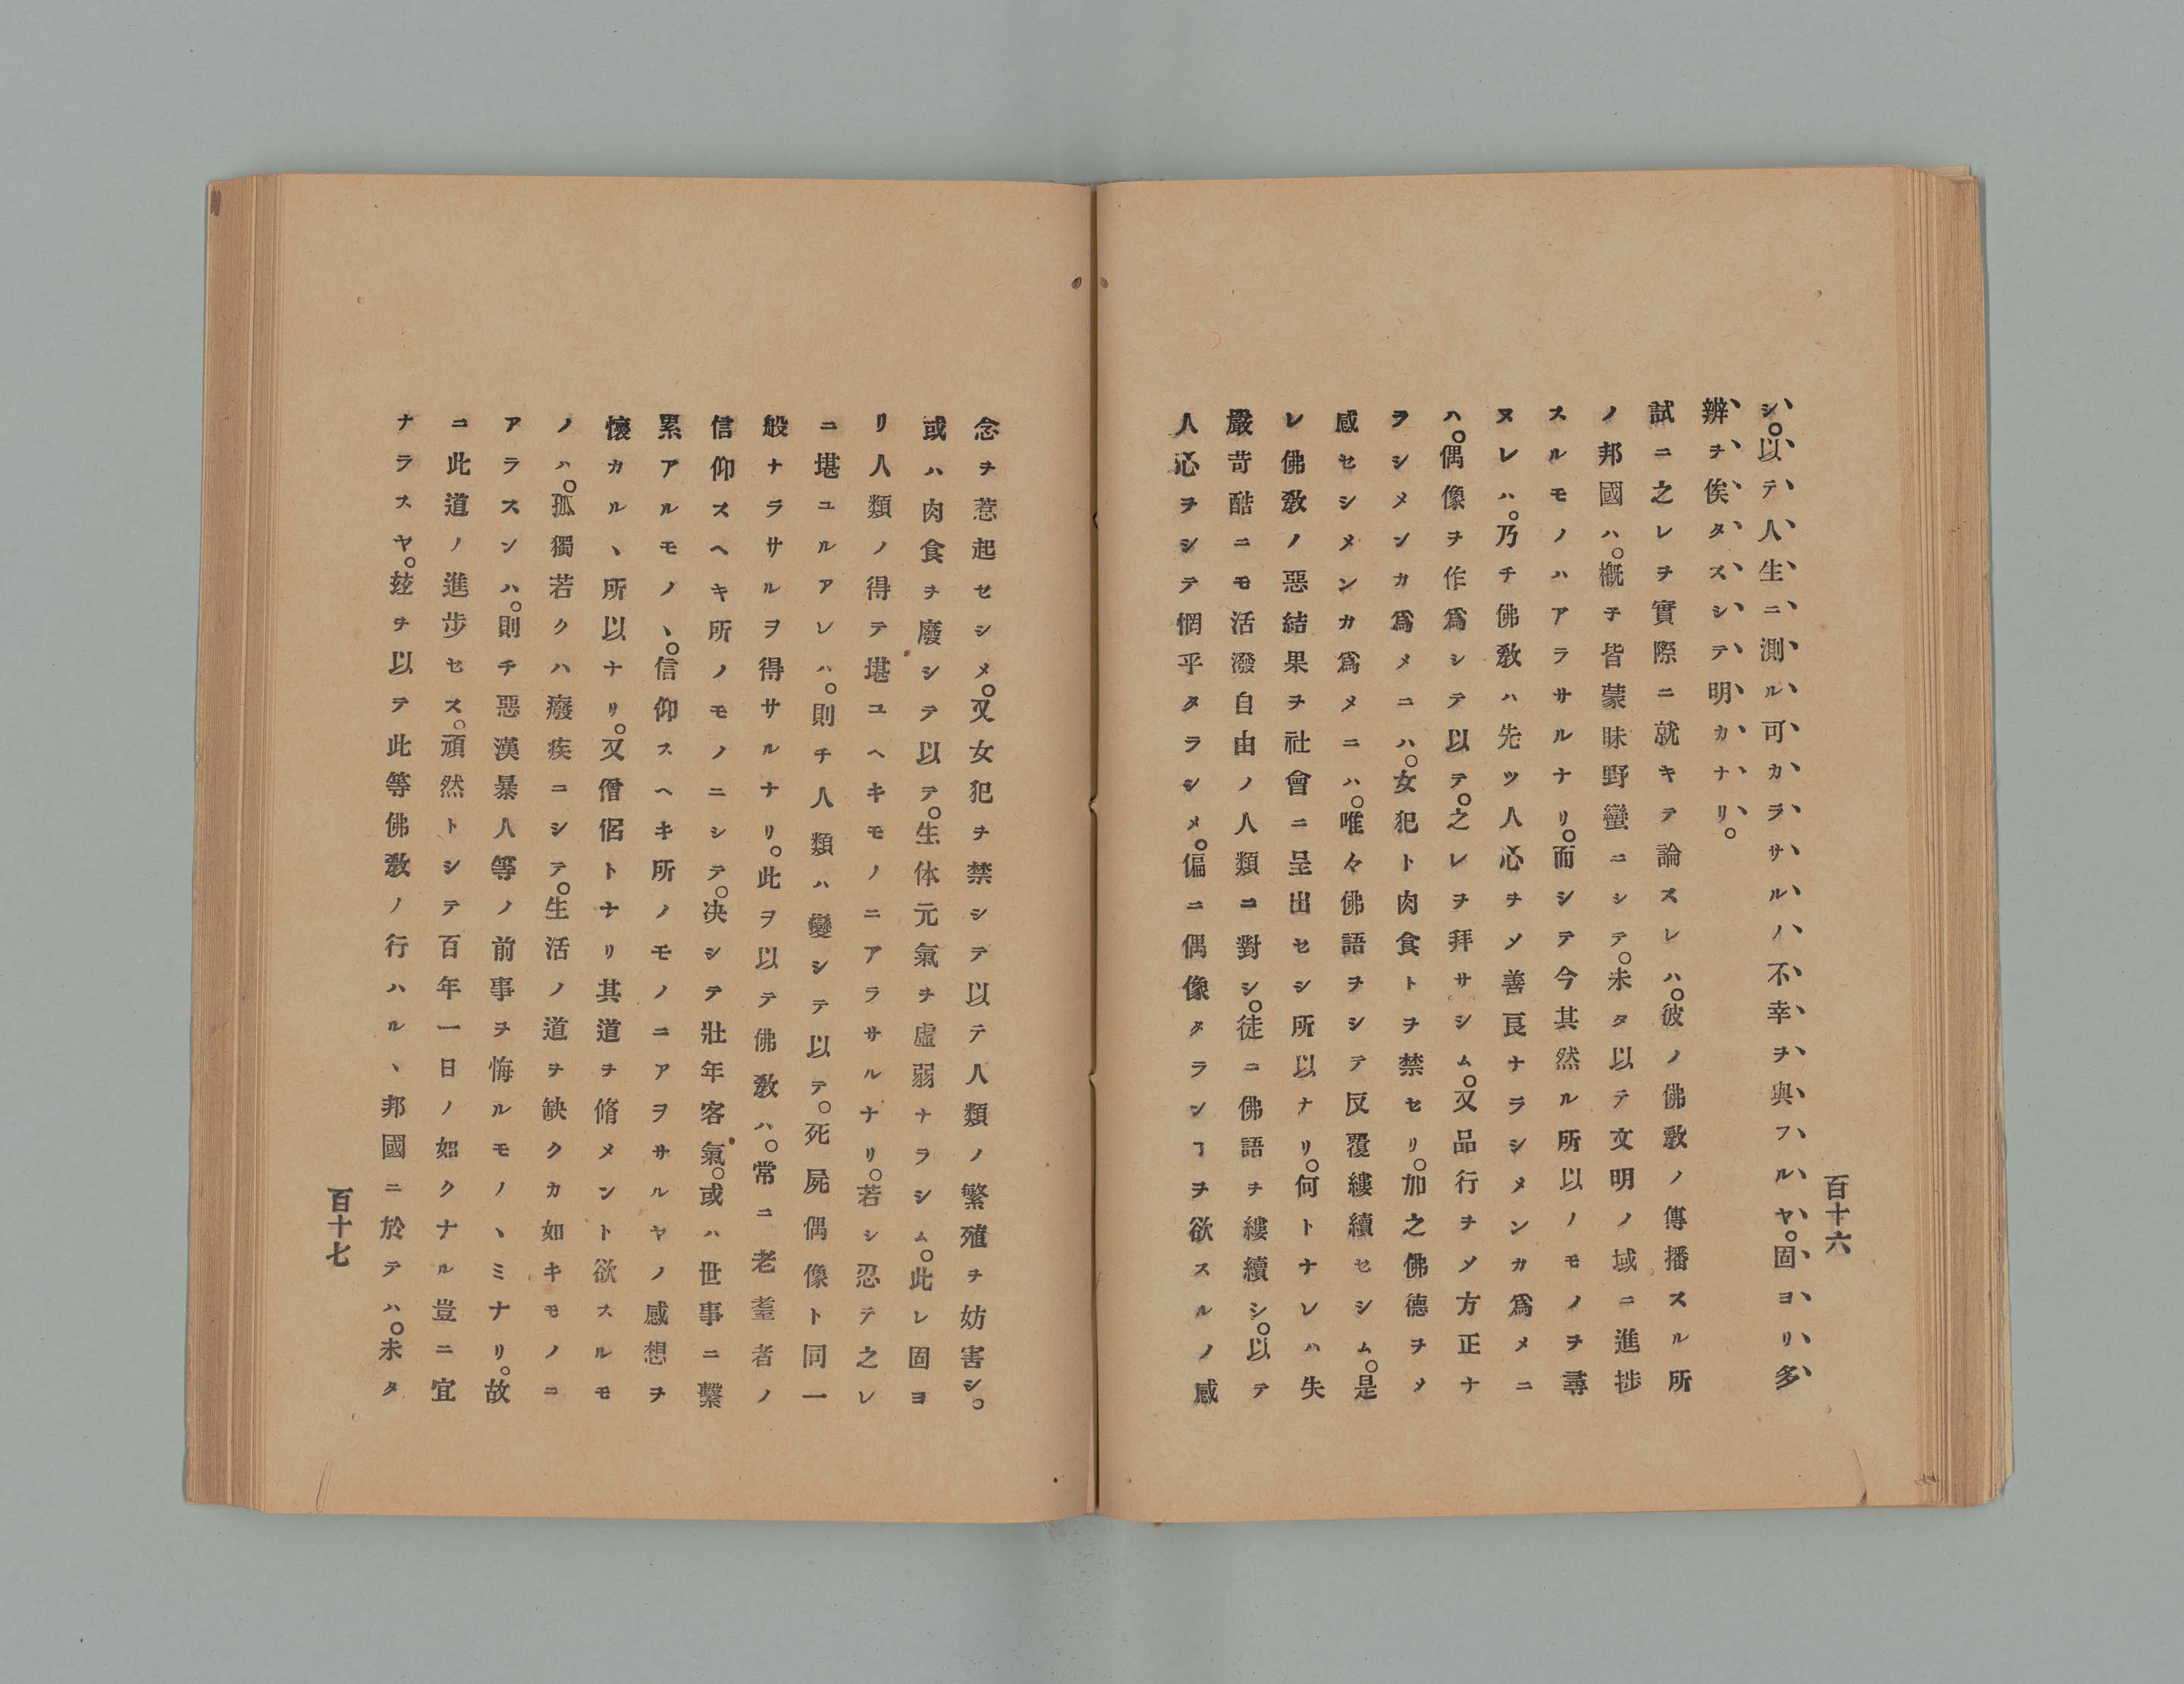 百十六
シ。以テ人生ニ測ル可カラサルノ不幸ヲ與フルヤ。固ヨリ多
辨ヲ俟タスシテ明カナリ。
試ニ之レヲ實際ニ就キテ論スレハ。彼ノ佛敎ノ傳播スル所
ノ邦國ハ。槪子皆蒙昧野蠻ニシテ。未タ以テ文明ノ域ニ進捗
スルモノハアラサルナリ。而シテ今其然ル所以ノモノヲ尋
ヌレハ。乃チ佛敎ハ先ツ人心チソ善良ナラシメンカ爲メニ
ハ。偶像ヲ作爲シテ以テ。之レヲ拜サシム。又品行ヲメソ方正ナ
ヲシメンカ爲メニハ。女犯ト肉食トヲ禁セリ。加之佛德ヲメ
感セシメンカ爲メニハ。唯々佛語ヲシテ反覆縷續セシム。是
レ佛敎ノ惡結果ヲ社會ニ呈出セシ所以ナリ。何トナレハ失
嚴苛酷ニモ活潑自由ノ人類ニ對シ。徒ニ佛語チ縷續シ。以テ
人心ヲシテ惘乎タラシメ。偏ニ偶像タランヿヲ欲スルノ感
念ヲ惹起セシメ。又女犯ヲ禁シテ以テ人類ノ繁殖チ妨害シ。
或ハ肉食ヲ廢シテ以テ。生体元氣チ虛弱ナラシム。此レ固ヨ
リ人類ノ得テ堪ユヘキモノニアラサルナリ。若シ忍テ之レ
ニ堪ユルアレハ。則チ人類ハ變シテ以テ。死屍偶像ト同一
般ナラサルヲ得サルナリ。此ヲ以テ佛敎ハ。常ニ老耋者ノ
信仰スヘキ所ノモノニシテ。决シテ壯年客氣。或ハ世事ニ繫
累アルモノヽ。信仰スヘキ所ノモノニアヲサルヤノ感想ヲ
懷カルヽ所以ナリ。又僧侶トナリ其道チ脩メント欲スルモ
ノハ。孤獨若クハ癈疾ニシテ。生活ノ道ヲ缺クカ如キモノニ
アラスンハ。則チ惡漢暴人等ノ前事ヲ悔ルモノヽミナリ。故
ニ此道ノ進步セス。頑然トシテ百年一日ノ如クナル豈ニ宜
ナラスヤ。玆チ以テ此等佛敎ノ行ハルヽ邦國ニ於テハ。未タ
百十七